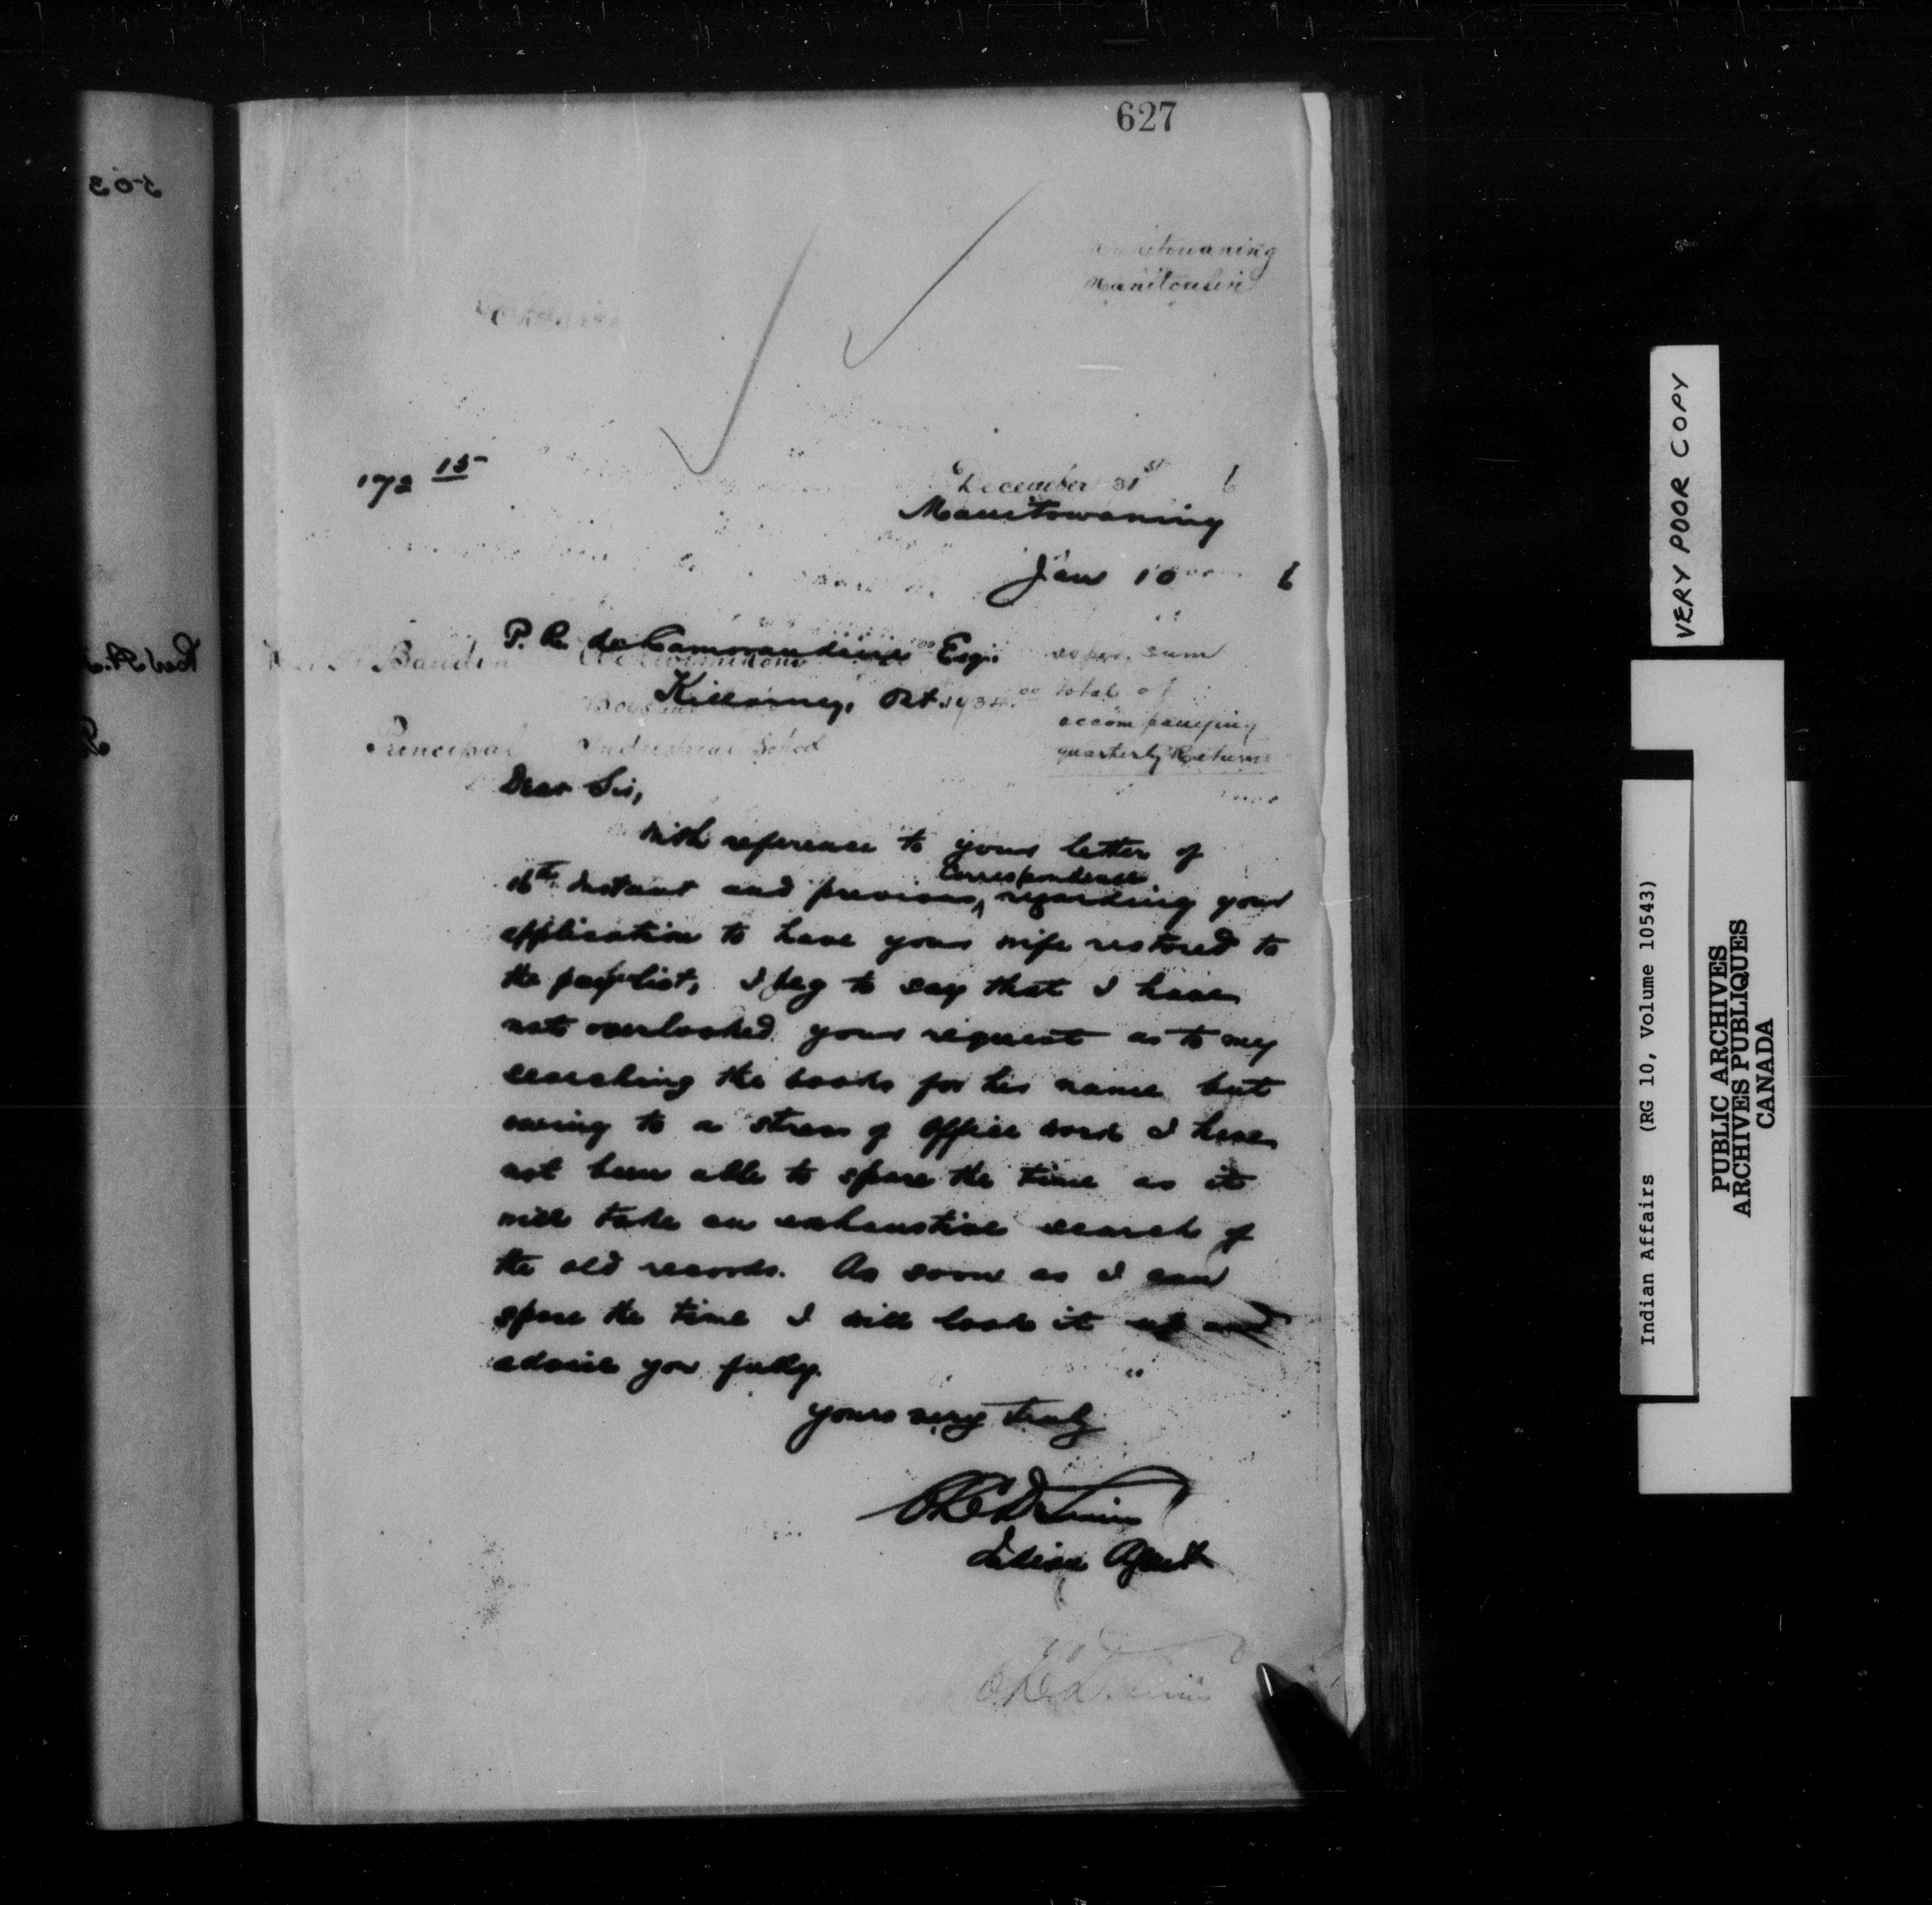 627
Manitowaning
Manitoulin
172 15
December 31st 6
Manitowaning
Jan 10 6
P. R. de Lamorandiere Esq.
Killarney, Ont.
Baudin
sum
total of
accompanying
quarterly Returns
Principal Industrial School
Dear Sir,
With reference to your letter of
16th instant and previous correspondence regarding your
application to have your wife restored to
the paylist, I beg to say that I have
not overlooked your request as to my
searching the books for her name but
owing to a stress of office work I have
not been able to spare the time as it
will take an exhaustive search of
the old records. As soon as I can
spare the time I will look it up and
advise you fully.
Yours very truly
Indian Agent
503
VERY POOR COPY
Indian Affairs (RG 10, Volume 10543)
PUBLIC ARCHIVES
ARCHIVES PUBLIQUES
CANADA